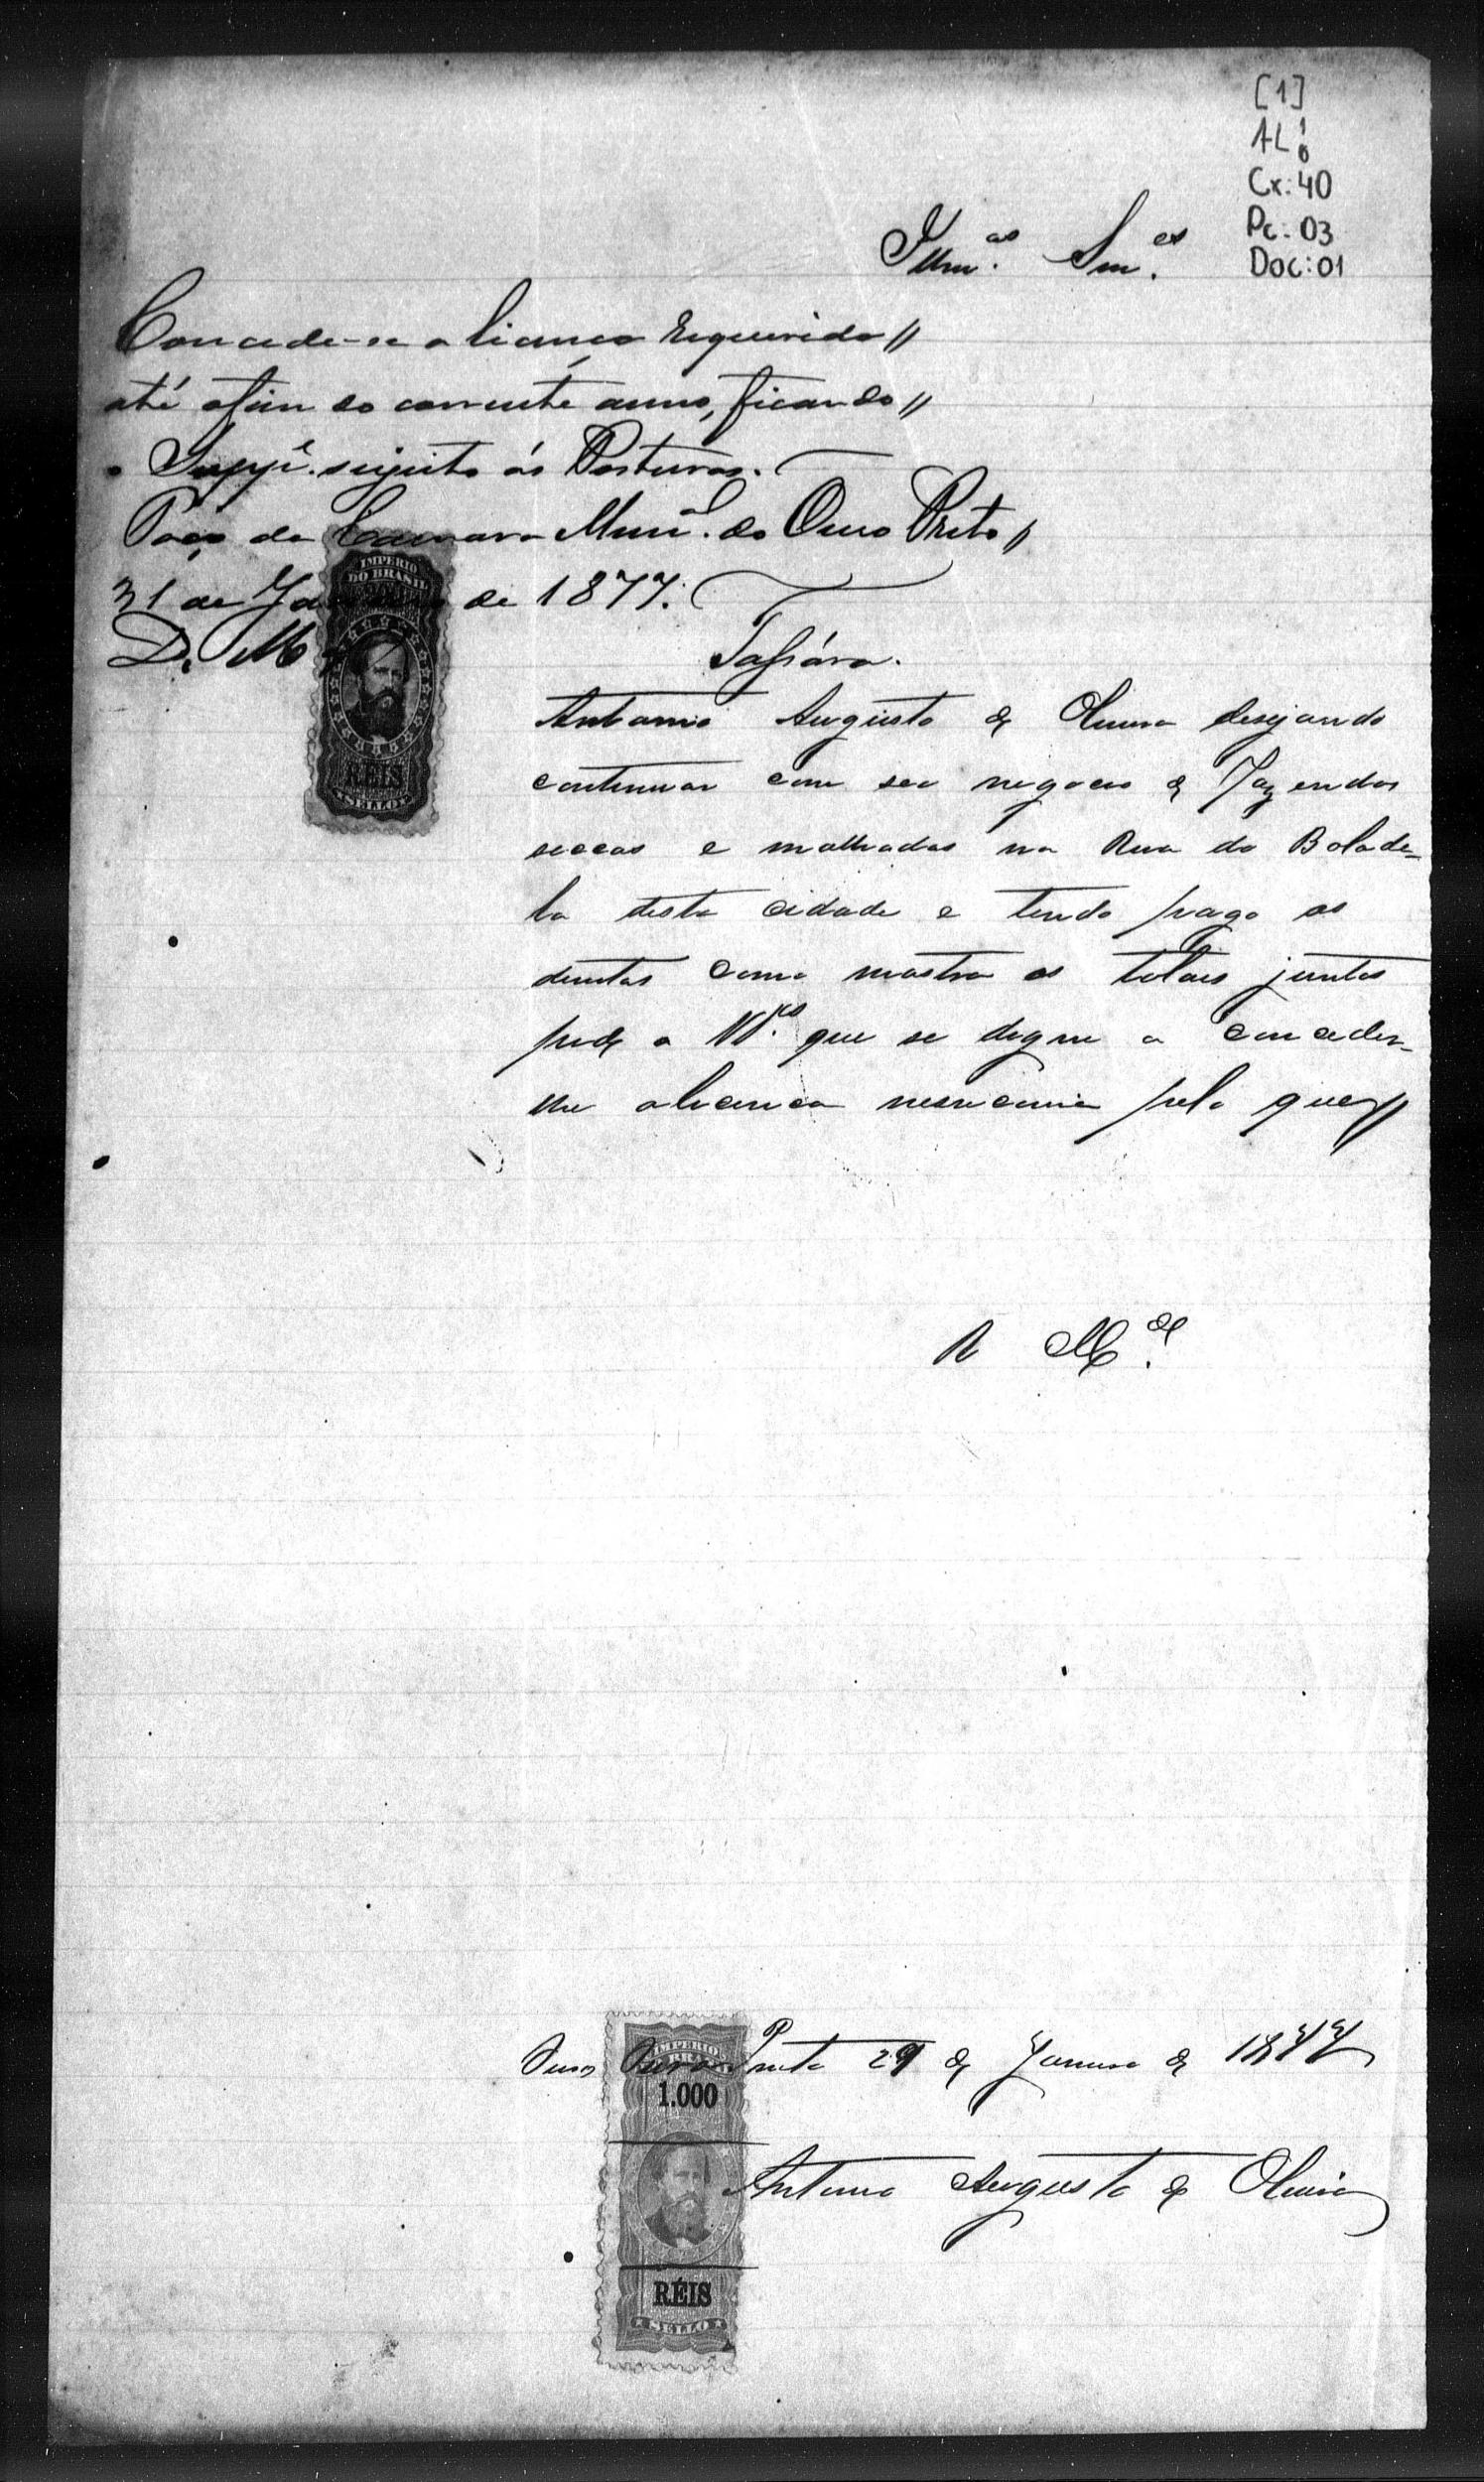 [1]
AL
Cx: 40
Pc: 03
Doc: 01
Illm.os Snr.es
Concede-se a licença requerida //
até o fim do corrente anno, ficando //
o Supp.e sujeito ás Posturas.
Paço da Camara Mun.al do Ouro Preto //
31 de Janeiro de 1877.
IMPERIO
DO BRASIL
RÉIS
SELLO
D. M
Antonio Augusto de Oliveira desejando
continuar com seo negocio de Fazendas
seccas e molhadas na Rua do Bobade-
la desta cidade e tendo pago os
direitos como mostra os tolões juntos
pede a VV.as que se digne a conceder-
me a licença nessecaria pelo que //
R M.ce
Ouro Preto 29 de Janeiro de 1877
IMPERIO
1.000
RÉIS
SELLO
Antonio Augusto de Oliveira